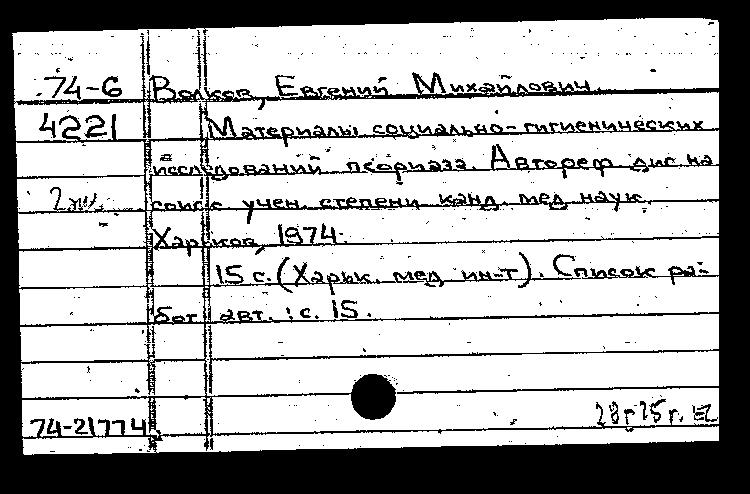 74-6 Волков, Евгений Михайлович.
4221 Материалы социально-гигиенических
исследований псориаза. Автореф. дис. на
2 экз. соиск. учен. степени канд. мед. наук.
Харьков, 1974.
15 с. (Харьк. мед. ин-т). Список ра-
бот авт.: с. 15.
74-21774